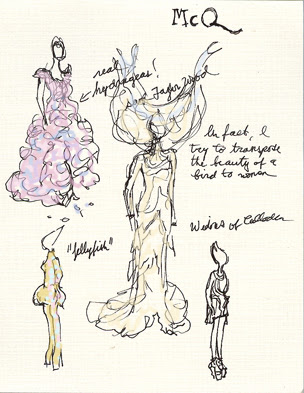 McQ
real
hydrangeas!
Taylor Wood
In fact, I
try to transpose
the beauty of a
bird to women
"Jellyfish"
Widows of Culloden